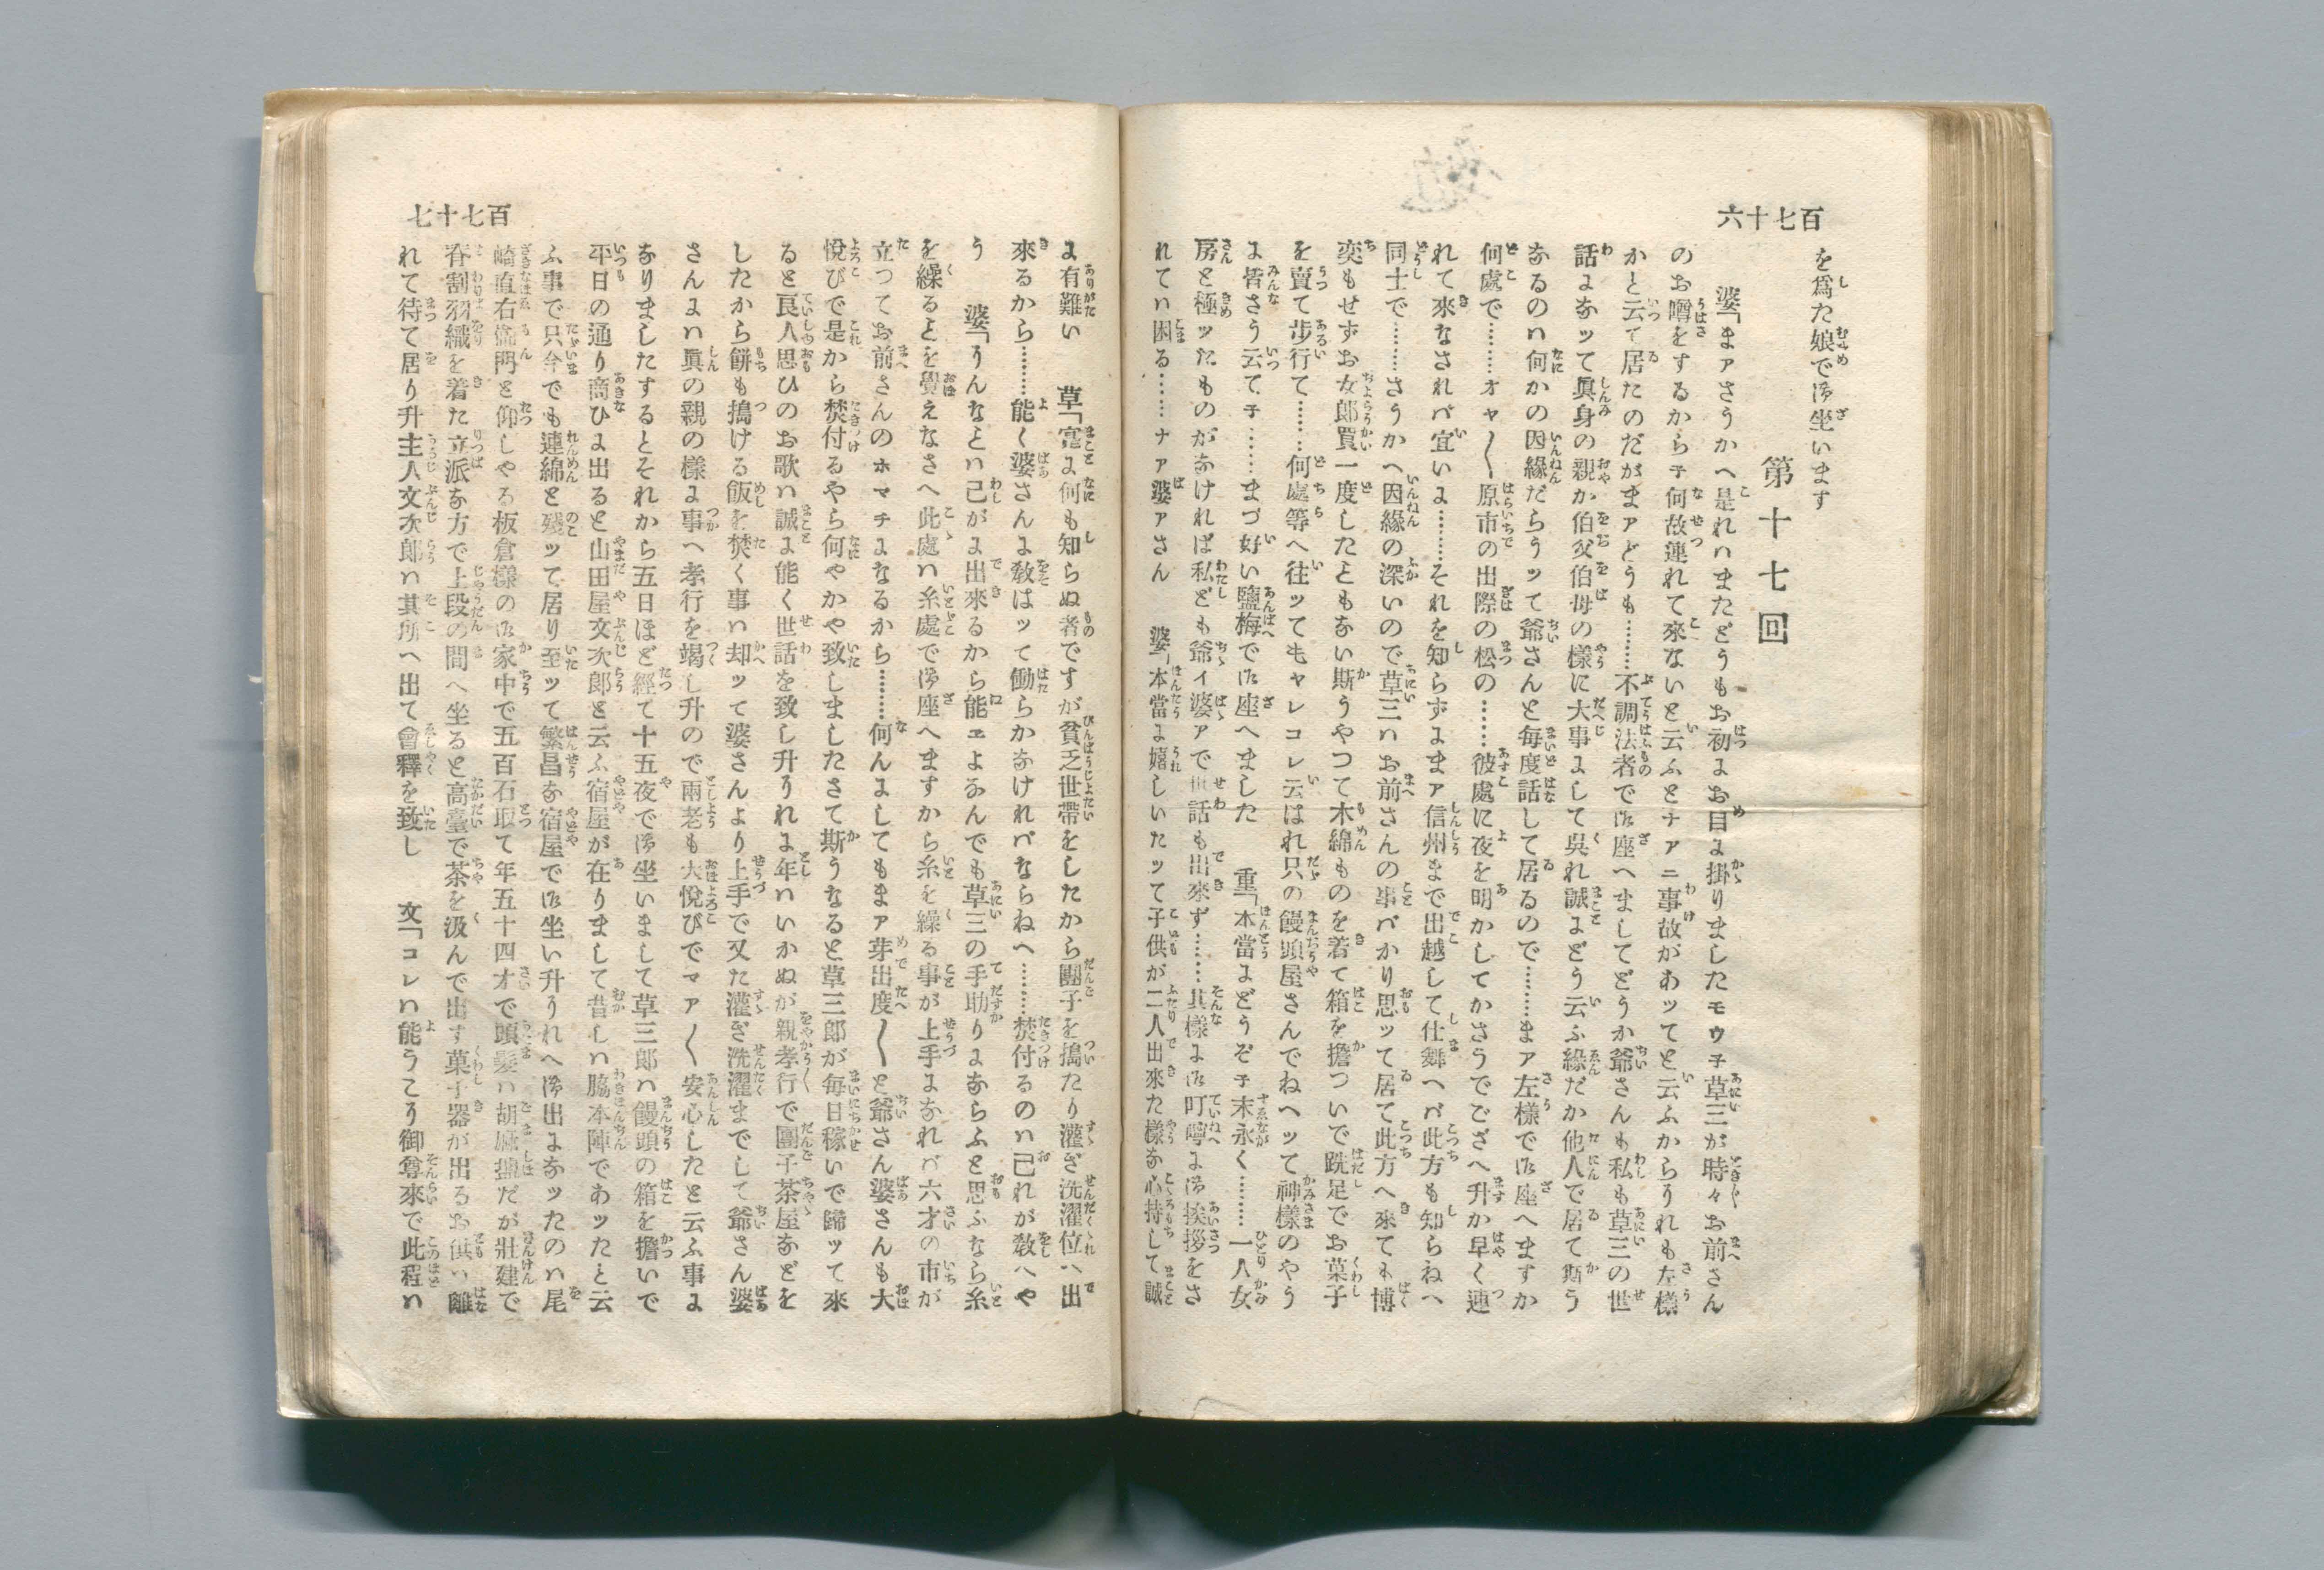 百七十六
を爲た娘で御坐います
第十七回
婆「まアさうかへ是れハまたどうもお初にお目に掛りましたモウ子草三が時々お前さん
のお噂をするから子何故連れて來ないと云ふとナアニ事故があッてと云ふからうれも左樣
かと云て居たのだがまアどうも………不調法者で御座へましてどうか爺さんも私も草三の世
話になッて眞身の親か伯父伯母の樣に大事にして呉れ誠にどう云ふ緣だか他人で居て斯う
なるのハ何かの因緣だらうッて爺さんと每度話して居るので………まア左樣で御座へますか
何處で………オヤ〱原市の出際の松の……彼處に夜を明かしてかさうでござへ升か早く連
れて來なされバ宜いに………それを知らずにまア信州まで出越して仕舞へバ此方も知らねへ
同士で………さうかへ因緣の深いので草三ハお前さんの事バかり思ッて居て此方へ來ても博
奕もせずお女郎買一度したともない斯うやつて木綿ものを着て箱を擔ついで跣足でお菓子
を賣て步行て……何處等へ往ッてもヤレコレ云はれ只の饅頭屋さんでねへッて神樣のやう
に皆さう云て子……まづ好い鹽梅で御座へました　重「本當にどうぞ子末永く………一人女
房と極ッたものがなければ私ども爺イ婆アで世話も出來ず……其樣に御叮嚀に御挨拶をさ
れてハ困る……ナア婆アさん　婆「本當に嬉しいたッて子供が二人出來た樣な心持して誠
百七十七
に有難い　草「寔に何も知らぬ者ですが貧乏世帶をしたから團子を搗たり灌ぎ洗濯位ハ出
來るから………能く婆さんに敎はッて働らかなけれバならねへ………焚付るのハ己れが敎へや
う　婆「うんなとハ己がに出來るから能ヱよゐんでも草三の手助りにならふと思ふなら糸
を繰るとを覺えなさへ此處ハ糸處で御座へますから糸を繰る事が上手になれバ六才の市が
立つてお前さんのホマチになるから………何んにしてもまア芽出度〱と爺さん婆さんも大
悅びで是から焚付るやら何やかや致しましたさて斯うなると草三郎が每日稼いで歸ッて來
ると良人思ひのお歌ハ誠に能く世話を致し升うれに年ハいかぬが親孝行で團子茶屋などを
したから餅も搗ける飯を焚く事ハ却ッて婆さんより上手で又た灌ぎ洗濯までして爺さん婆
さんにハ眞の親の樣に事へ孝行を竭し升ので兩老も大悅びでマア〱安心したと云ふ事に
なりましたするとそれから五日ほど經て十五夜で御坐いまして草三郎ハ饅頭の箱を擔いで
平日の通り商ひに出ると山田屋文次郎と云ふ宿屋が在りまして昔しハ脇本陣であッたと云
ふ事で只今でも連綿と殘ッて居り至ッて繁昌な宿屋で御坐い升うれへ御出になッたのハ尾
崎直右衞門と仰しやる板倉樣の御家中で五百石取て年五十四才で頭髮ハ胡麻鹽だが壯健で
脊割羽織を着た立派な方で上段の間へ坐ると高臺で茶を汲んで出す菓子器が出るお供ハ離
れて待て居り升主人文次郎ハ其所へ出て會釋を致し　文「コレハ能うこう御尊來で此程ハ